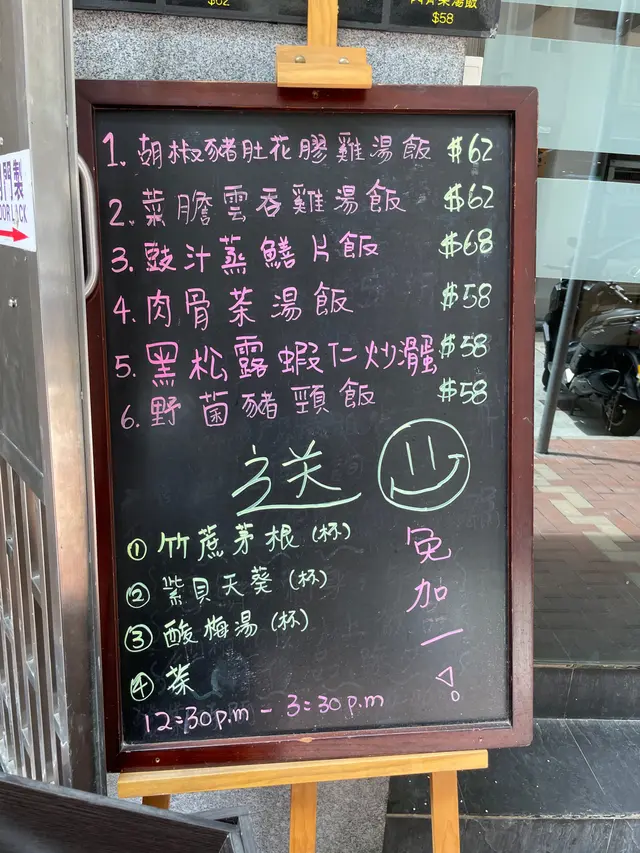 $62
肉骨茶湯飯
$58
門製
DOOR LOCK
1. 胡椒豬肚花膠雞湯飯 $62
2. 菜膽雲吞雞湯飯 $62
3. 豉汁蒸鱔片飯 $68
4. 肉骨茶湯飯 $58
5. 黑松露蝦仁炒滑蛋 $58
6. 野菌豬頸飯 $58
送
① 竹蔗茅根 (杯)
② 紫貝天葵 (杯)
③ 酸梅湯 (杯)
④ 茶
免加一!
12:30p.m - 3:30p.m